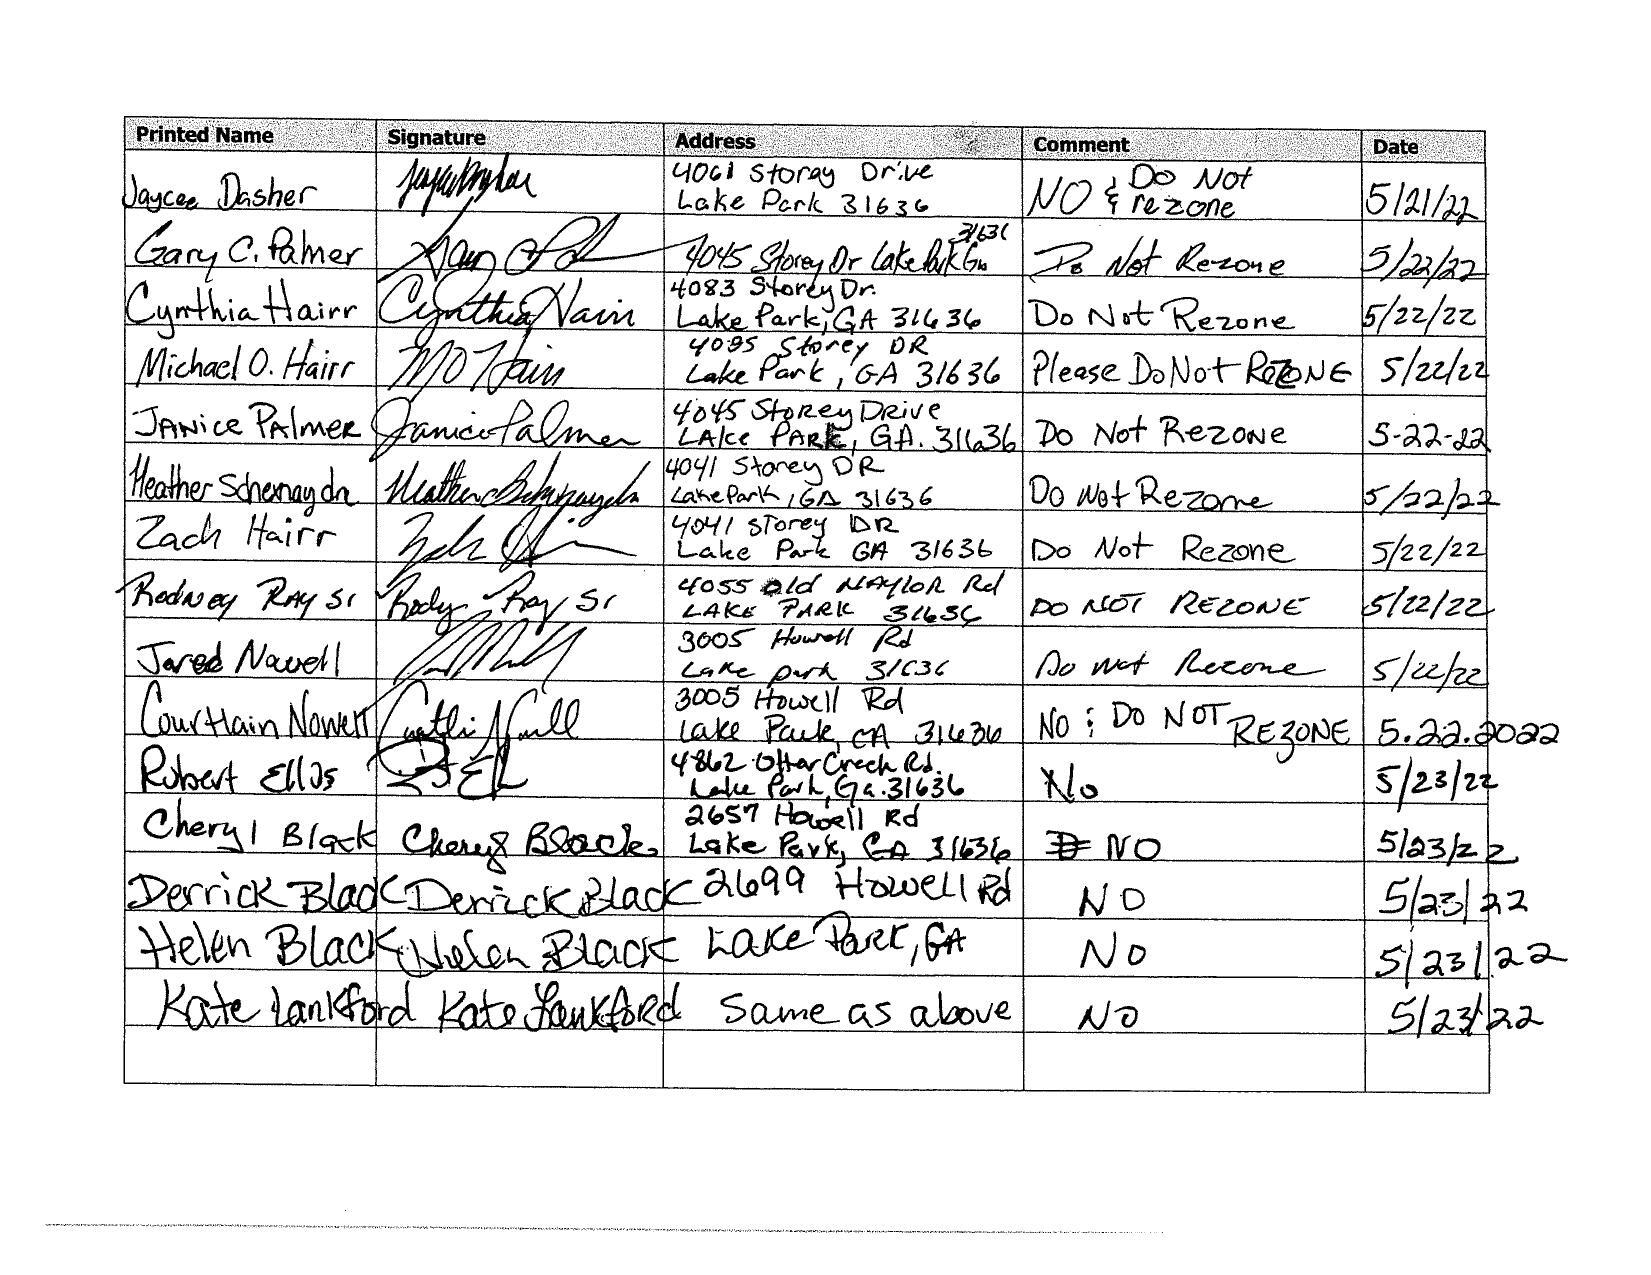 Printed Name Signature Address Comment Date
4061 Storey Drive Do Not
Jaycee Dasher Lake Park 31636 NO & rezone 5/21/22
31636
Gary C. Palmer 4045 Storey Dr Lake Park Ga Do Not Rezone 5/22/22
4083 Storey Dr.
Cynthia Hairr Cynthia Hairr Lake Park, GA 31636 Do Not Rezone 5/22/22
4085 Storey DR
Michael O. Hairr MO Hairr Lake Park, GA 31636 Please Do Not Rezone 5/22/22
4045 Storey Drive
Janice Palmer Janice Palmer Lake Park, GA. 31636 Do Not Rezone 5-22-22
4041 Storey DR
Heather Lake Park, GA 31636 Do Not Rezone 5/22/22
4041 Storey DR
Zach Hairr Lake Park GA 31636 Do Not Rezone 5/22/22
4055 Old Naylor Rd
Rodney Ray Sr Rodney Ray Sr Lake Park 31636 DO NOT REZONE 5/22/22
3005 Howell Rd
Jared Nowell Lake park 31636 Do Not Rezone 5/22/22
3005 Howell Rd
Nowell Lake Park, GA 31636 NO : DO NOT REZONE 5.22.2022
4862 Otter Creek Rd.
Robert Lake Park, Ga. 31636 No 5/23/22
2657 Howell Rd
Cheryl Black Cheryl Black Lake Park, GA 31636 NO 5/23/22
Derrick Black Derrick Black 2699 Howell Rd NO 5/23/22
Helen Black Helen Black Lake Park, GA NO 5/23/22
Kate Lankford Kate Lankford Same as above NO 5/23/22